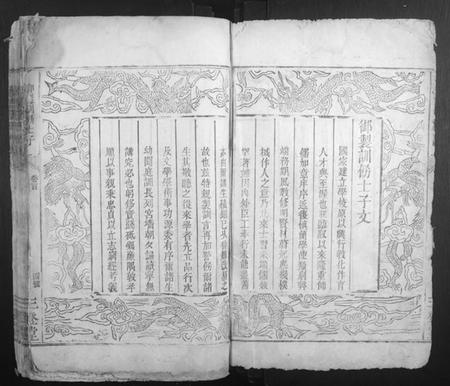 御製訓飭士子文
國家建立學校原以興行教化作育
人才典至渥也朕臨馭以來隆重師
儒加意庠序近復慎簡學使釐剔弊
端務期風教修明賢材蔚起庶幾棫
樸作人之意乃比來士習未端儒效
罕著雖因內外臣工奉行未能盡善
生其敬聽之從來學者先立品行次
及文學學術事功源委有序爾諸生
幼聞庭訓長列宮墻朝夕誦讀寧無
講究必也躬修實踐砥礪廉隅敦孝
順以事親秉忠貞以立志
卷首
三
堂